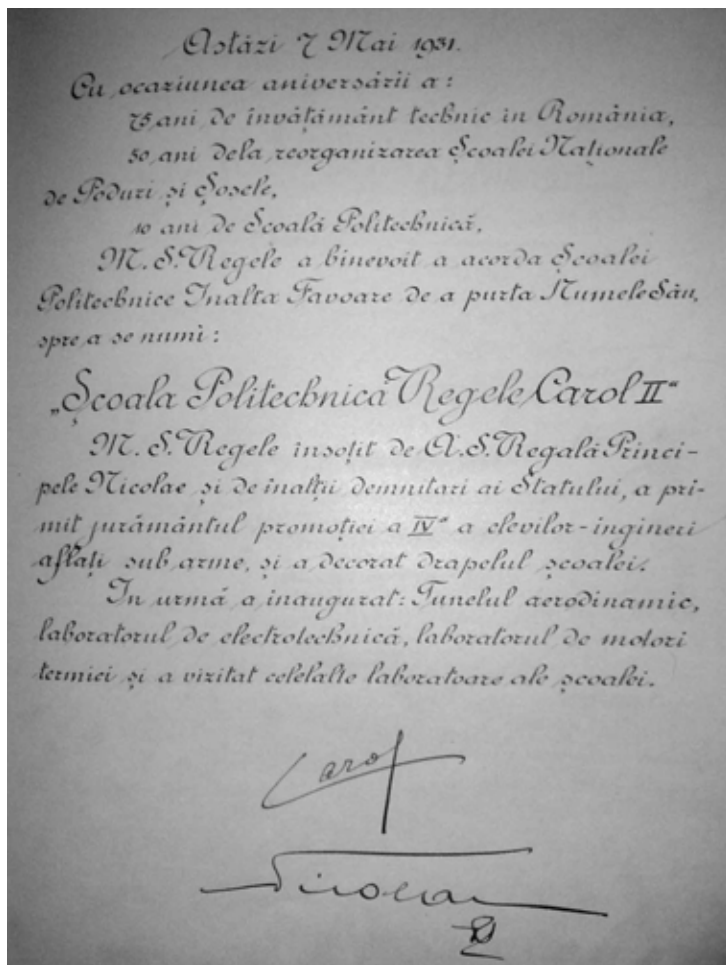 Astăzi 7 Mai 1931.
Cu ocaziunea aniversării a:
75 ani de învăţământ technic in România,
50 ani dela reorganizarea Şcoalei Naţionale
de Poduri şi Şosele,
10 ani de Şcoală Politechnică,
M. S. Regele a binevoit a acorda Şcoalei
Politechnice Inalta Favoare de a purta Numele Său,
spre a se numi:
„Şcoala Politechnică Regele Carol II“
M. S. Regele însoţit de A. S. Regală Princi-
pele Nicolae şi de înalţii demnitari ai Statului, a pri-
mit jurământul promoţiei a IV-a a elevilor-ingineri
aflaţi sub arme, şi a decorat drapelul şcoalei.
In urmă a inaugurat: Tunelul aerodinamic,
laboratorul de electrotechnică, laboratorul de motori
termici şi a vizitat celelalte laboratoare ale şcoalei.
Carol
Nicolae